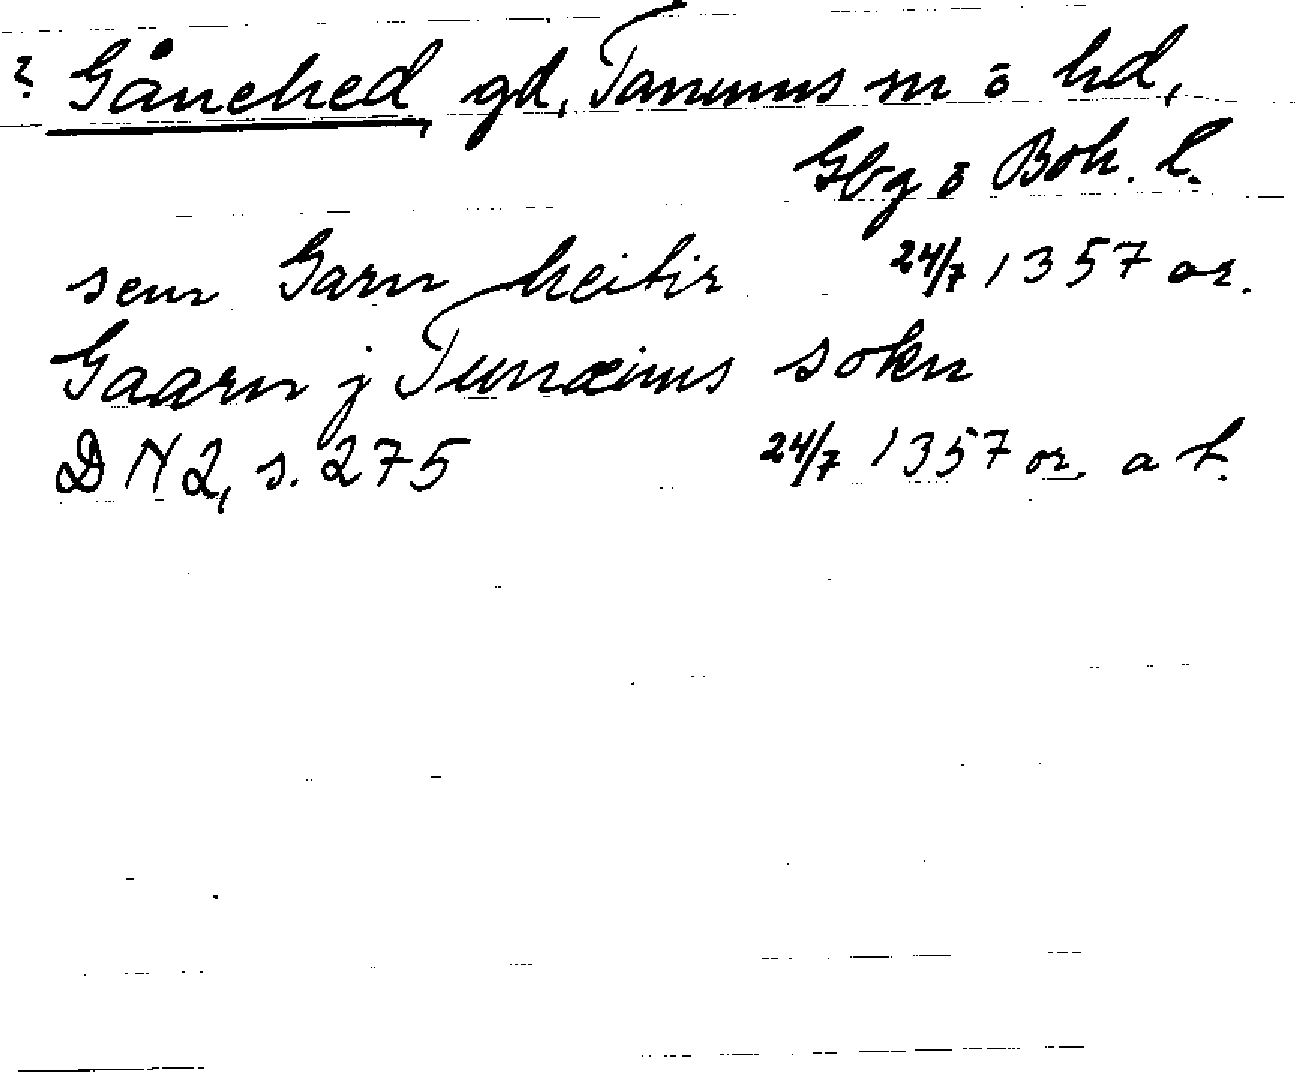 ? Gånehed gd, Tanums sn o hd,
Gbg o Boh. l.
sem Garn heitir 24/7 1357 or.
Gaarn j Tunæims sokn
DN 2, s. 275 24/7 1357 or. a t.